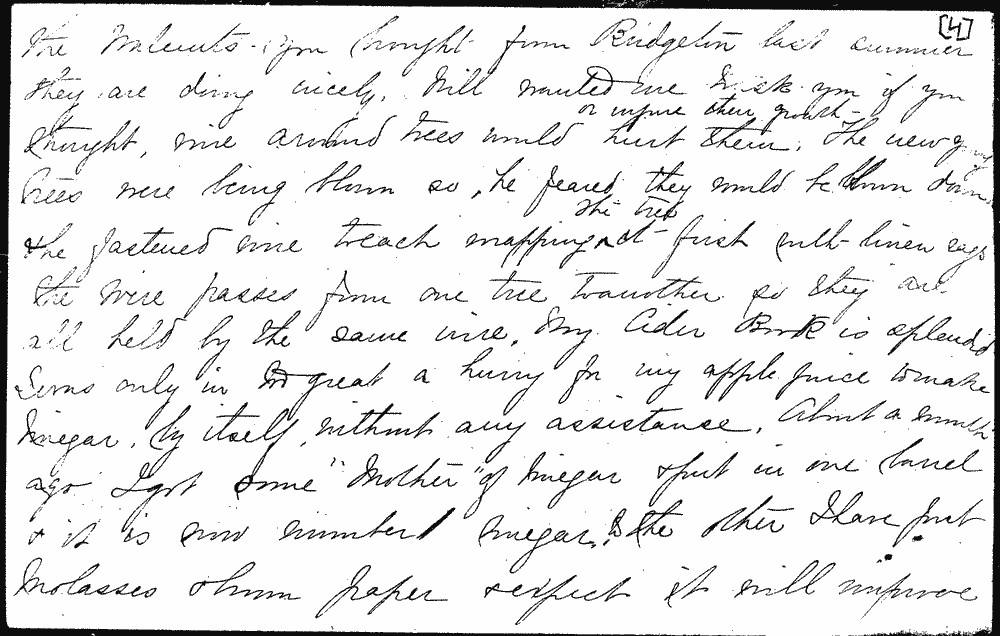 [4]
the Walnuts you bought from Bridgeton last summer
they are doing nicely. Will wanted me to ask you if you
or injure their growth
thought, wire around trees would hurt them. The new
trees were being blown so, he feared they would be blown down
the tree
& he fastened wire to each wrapping at first with linen rags
the wire passes from one tree to another so they are
all held by the same wire. My Cider Book is splendid
I was only in too great a hurry for my apple juice to make
Vinegar. by itself, without any assistance. About a month
ago I got some "Mother" of Vinegar & put in one barrel
& it is now number 1 vinegar. To the other I have put
Molasses & brown paper & expect it will improve